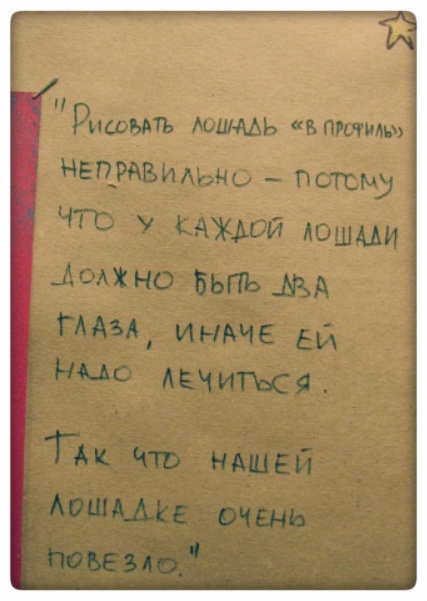 "Рисовать лошадь «в профиль»
неправильно – потому
что у каждой лошади
должно быть два
глаза, иначе ей
надо лечиться.
Так что нашей
лошадке очень
повезло."